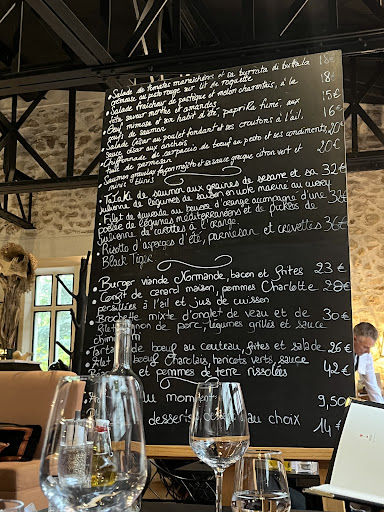 • Salade de tomates maraichères et sa burrata di bufala 18€
crémeuse au pesto rouge sur lit de roquette
• Salade fraîcheur de pastèque et melon charentais, à la 18€
féta saveur menthe et amandes
• Œuf mimosa et son habit d'été, paprika fumé, aux 15€
œufs de saumon
• Salade César au poulet fondant et ses croutons à l'ail, 16€
sauce césar aux anchois
• Chiffonnade de carpaccio de bœuf au pesto et ses condiments, 20€
tuile de parmesan
• Saumon gravelax façon mojito et sa sauce grecque citron vert et 20€
minis blinis
• Tataki de saumon aux graines de sésame et sa 32€
julienne de légumes de saison en wok marine au curry
• Filet de daurade au beurre d'orange accompagné d'une 32€
poêlée de légumes méditerranéens et de
julienne de carottes à l'orange
• Risotto d'asperges d'été, parmesan et crevettes 36€
Black Tiger
• Burger viande Normande, bacon et frites 23€
• Confit de canard maison, pommes Charlotte 28€
persillées à l'ail et jus de cuisson
• Brochette mixte d'onglet de veau et de 30€
filet mignon de porc, légumes grillés et sauce
chim
• Tartare de bœuf au couteau, frites et salade 26€
• bœuf Charolais, haricots verts, sauce 42€
et pommes de terre rissolées
du moment 9,50
desserts, au choix 14€